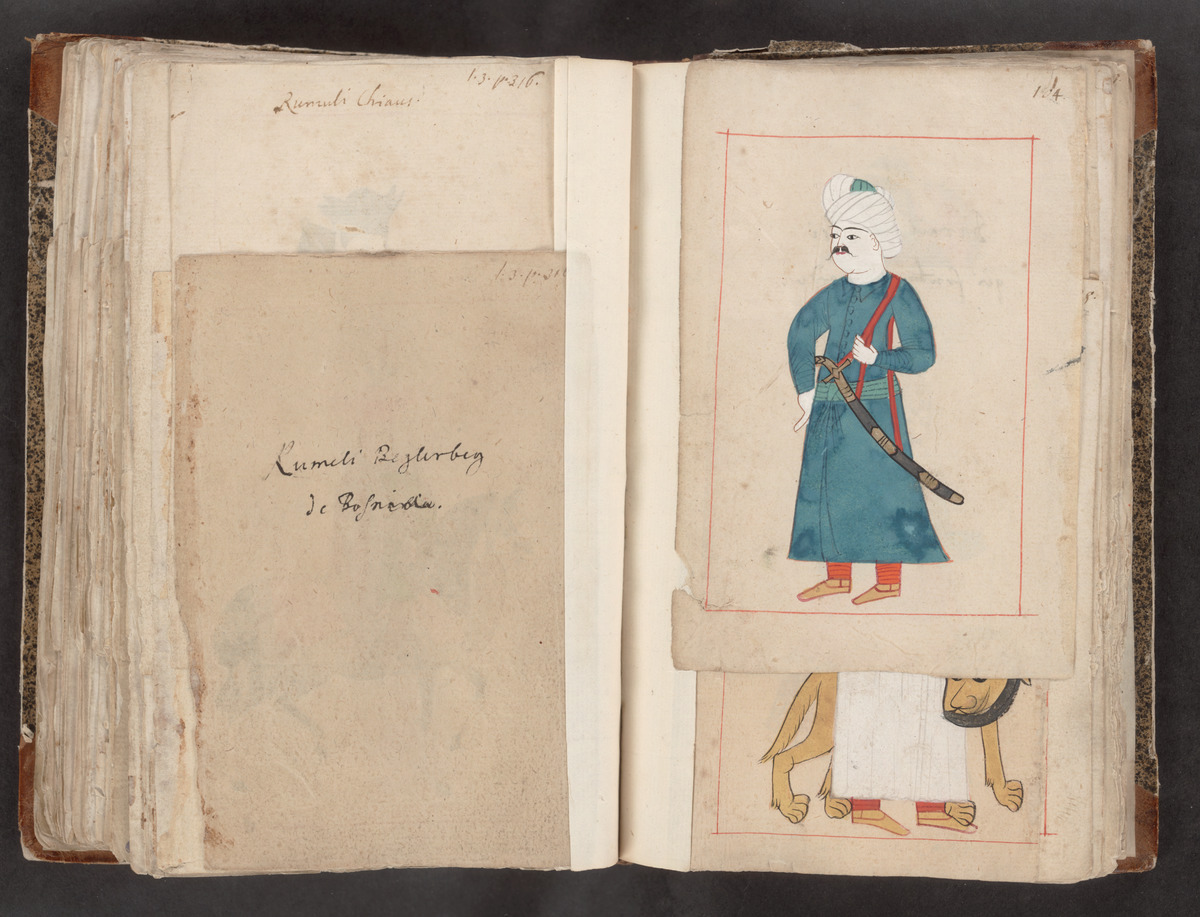 l. 3. p. 316.
Rumuli Chiaus.
l. 3. p. 31
Rumeli Beglerbeg
de Bosnia
164